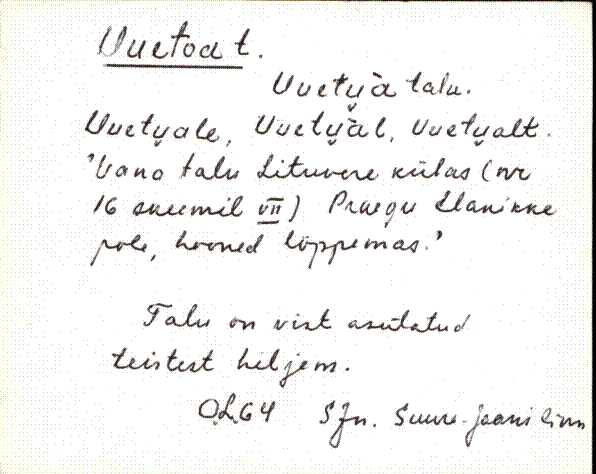 Uuetoa t.
Uuetu̯a talu.
Uuetu̯ale, Uuetu̯al, Uuetu̯alt.
'Vana talu Lituvere külas (nr
16 skeemil VII) Praegu elanikke
pole, hooned lõppemas.'
Talu on vist asutatud
teistest hiljem.
O.L. 64 SJn. Suure-Jaani linn